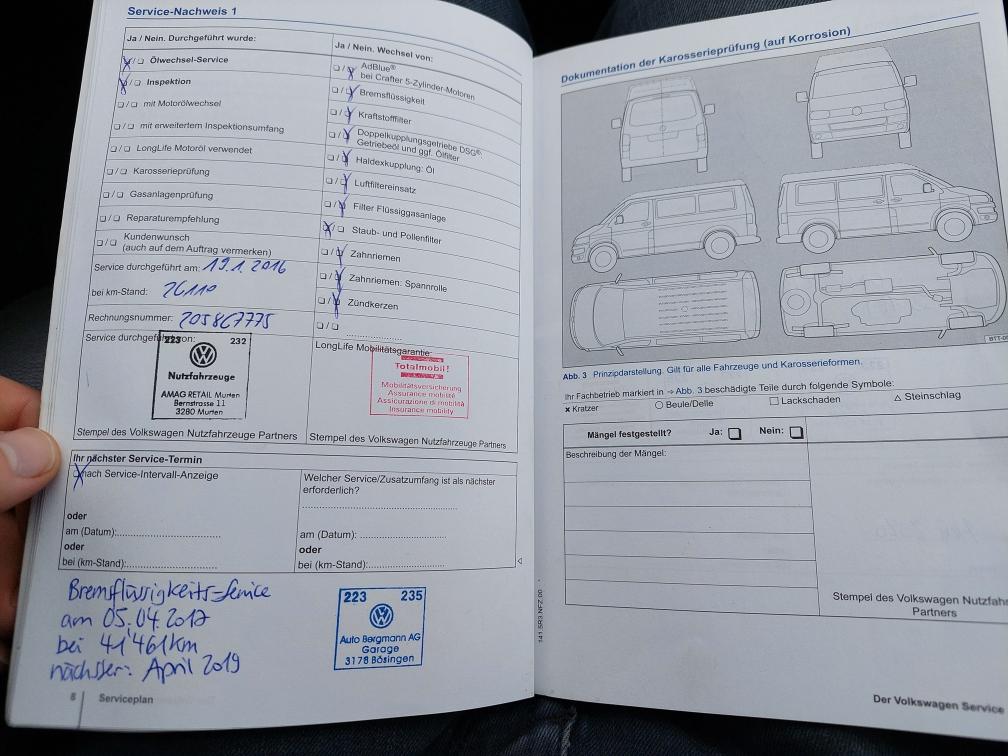 Service-Nachweis 1
Ja / Nein. Durchgeführt wurde:
Ölwechsel-Service
Inspektion
mit Motorölwechsel
mit erweitertem Inspektionsumfang
LongLife Motoröl verwendet
Karosserieprüfung
Gasanlagenprüfung
Reparaturempfehlung
Kundenwunsch
(auch auf dem Auftrag vermerken)
Service durchgeführt am: 19.1.2016
bei km-Stand: 26110
Rechnungsnummer: 205867775
Service durchgeführt von:
223 232
Nutzfahrzeuge
AMAG RETAIL Murten
Bernstrasse 11
3280 Murten
Stempel des Volkswagen Nutzfahrzeuge Partners
Ja / Nein. Wechsel von:
AdBlue®
bei Crafter 5-Zylinder-Motoren
Bremsflüssigkeit
Kraftstofffilter
Doppelkupplungsgetriebe DSG®:
Getriebeöl und ggf. Ölfilter
Haldexkupplung: Öl
Luftfiltereinsatz
Filter Flüssiggasanlage
Staub- und Pollenfilter
Zahnriemen
Zahnriemen: Spannrolle
Zündkerzen
LongLife Mobilitätsgarantie:
Totalmobil!
Mobilitätsversicherung
Assurance mobilité
Assicurazione di mobilità
Insurance mobility
Stempel des Volkswagen Nutzfahrzeuge Partners
Ihr nächster Service-Termin
nach Service-Intervall-Anzeige
oder
am (Datum):
oder
bei (km-Stand):
Welcher Service/Zusatzumfang ist als nächster
erforderlich?
am (Datum):
oder
bei (km-Stand):
Bremsflüssigkeits-Service
am 05.04.2017
bei 41'461km
nächster: April 2019
223 235
Auto Bergmann AG
Garage
3178 Bösingen
8 Serviceplan
141.5R3.NFZ.00
Dokumentation der Karosserieprüfung (auf Korrosion)
Abb. 3 Prinzipdarstellung. Gilt für alle Fahrzeuge und Karosserieformen.
Ihr Fachbetrieb markiert in ⇒ Abb. 3 beschädigte Teile durch folgende Symbole:
× Kratzer ○ Beule/Delle □ Lackschaden △ Steinschlag
Mängel festgestellt? Ja: Nein:
Beschreibung der Mängel:
Stempel des Volkswagen
Partners
Der Volkswagen Service